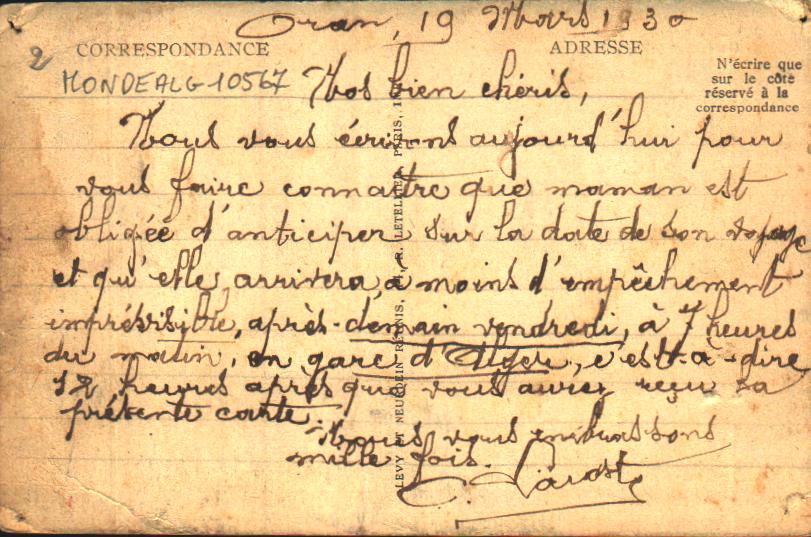 Oran, 19 Mars 1930
2 CORRESPONDANCE
ADRESSE
MONDEALG-10567
N'écrire que
sur le côté
réservé à la
correspondance
Nos bien chéris,
Nous vous écrivons aujourd'hui pour
vous faire connaître que maman est
obligée d'anticiper sur la date de son voyage
et qu'elle arrivera, à moins d'empêchement
imprévisible, après-demain vendredi, à 7 heures
du matin, en gare d'Alger, c'est-à-dire
12 heures après que vous aurez reçu la
présente carte.
Nous vous embrassons
mille fois.
LEVY ET NEURDEIN REUNIS, LETELLIER, PARIS,